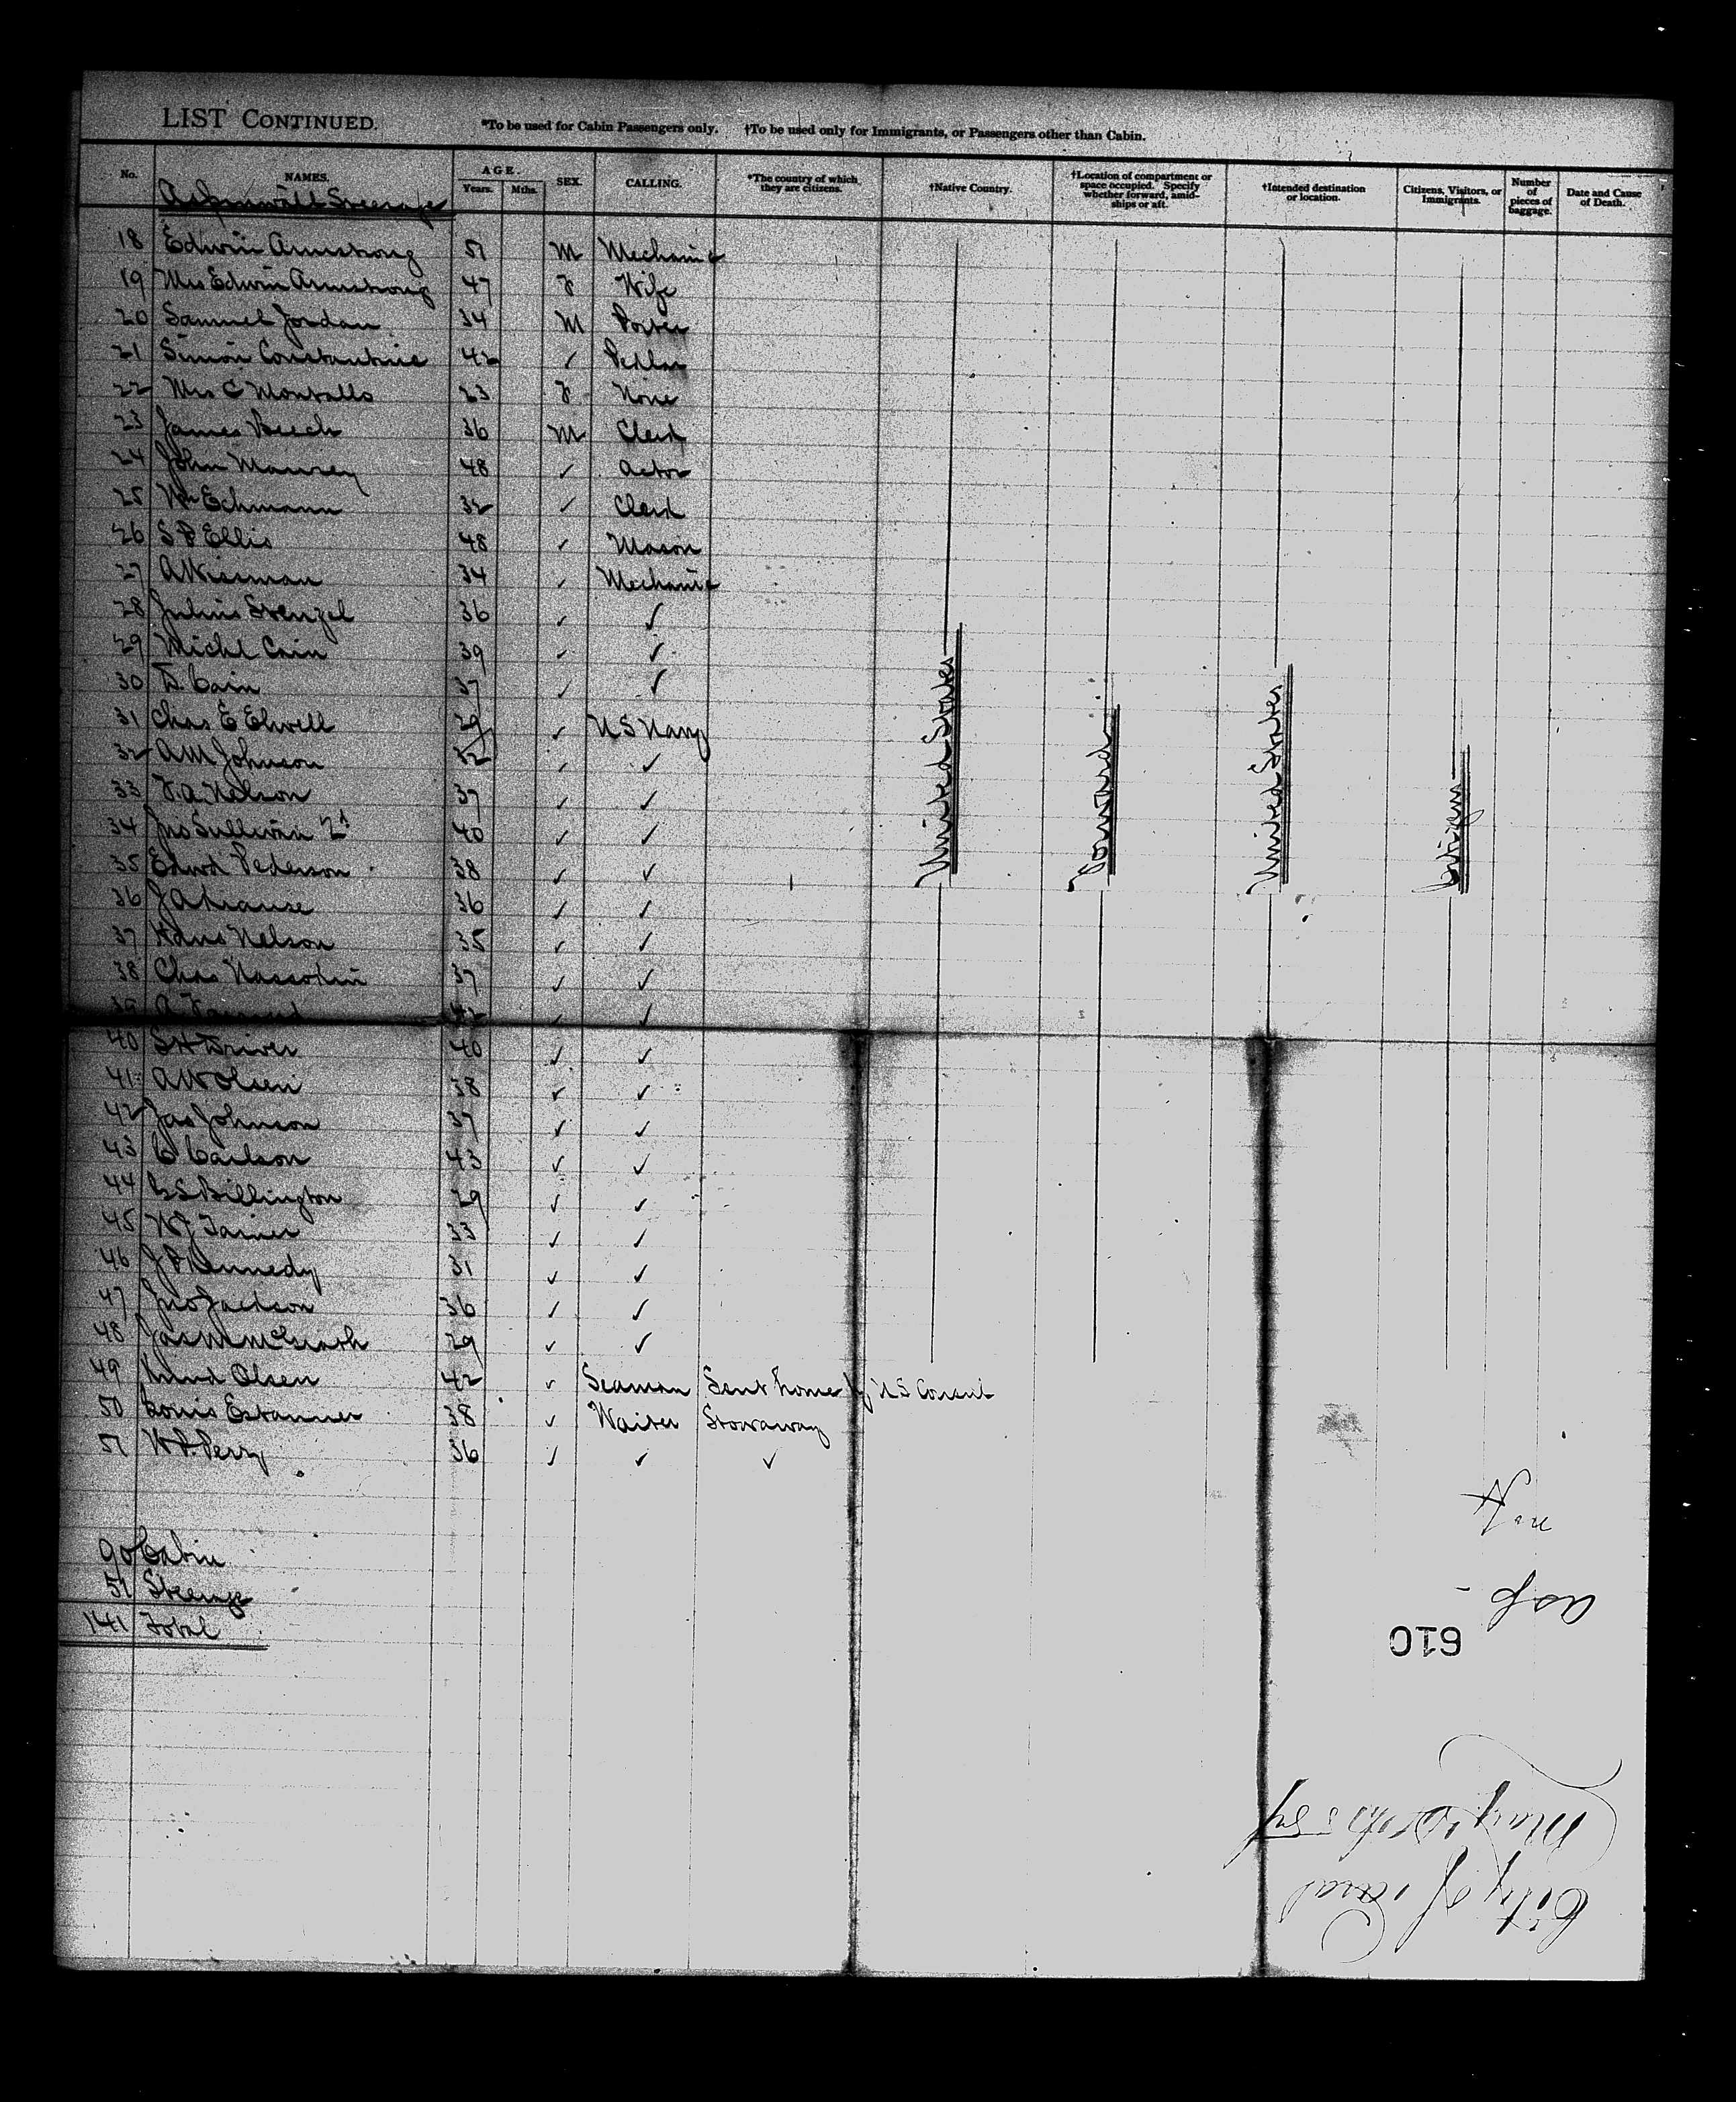 LIST CONTINUED. *To be used for Cabin Passengers only. †To be used only for Immigrants, or Passengers other than Cabin.
No. NAMES. AGE. Years. Mths. SEX. CALLING. *The country of which they are citizens. †Native Country. †Location of compartment or space occupied. Specify whether forward, amidships or aft. †Intended destination or location. Citizens, Visitors, or Immigrants. Number of pieces of baggage. Date and Cause of Death.
Aspinwall Steerage
18 Edwin Armstrong 51 M Mechanic
19 Mrs Edwin Armstrong 47 F Wife
20 Samuel Jordan 34 M Porter
21 Simon Constantine 42 ✓ Pedlar
22 Mrs C Montalls 23 F None
23 James Beech 36 M Clerk
24 John Maurey 48 ✓ Actor
25 Wm Echmann 32 ✓ Clerk
26 S P Ellis 48 ✓ Mason
27 A Kissman 34 ✓ Mechanic
28 Julius Stenzel 36 ✓ ✓
29 Michl Cain 39 ✓ ✓
30 D. Cain 37 ✓ ✓
31 Chas E Elwell 29 ✓ U S Navy
32 A M Johnson 32 ✓ ✓
33 F. A. Nelson 37 ✓ ✓
34 Jno Sullivan 2d 40 ✓ ✓
35 Edwd Pederson 38 ✓ ✓
36 J A Krause 36 ✓ ✓
37 Hans Nelson 35 ✓ ✓
38 Chas 37 ✓ ✓
39 A 42 ✓ ✓
40 S H Driver 40 ✓ ✓
41 A W Olsen 38 ✓ ✓
42 Jas Johnson 37 ✓ ✓
43 C Carlson 43 ✓ ✓
44 G S Billington 29 ✓ ✓
45 W J 33 ✓ ✓
46 J P Kennedy 31 ✓ ✓
47 Jno Jackson 36 ✓ ✓
48 Jas M McGrath 29 ✓ ✓
49 Knud Olsen 42 ✓ Seaman Sent home by U S Consul
50 Louis 38 ✓ Waiter Stowaway
51 W P. Perry 36 ✓ ✓ ✓
United States
Forward
United States
Citizens
90 Cabin
51 Steerage
141 Total
Asp -
610
City of Para